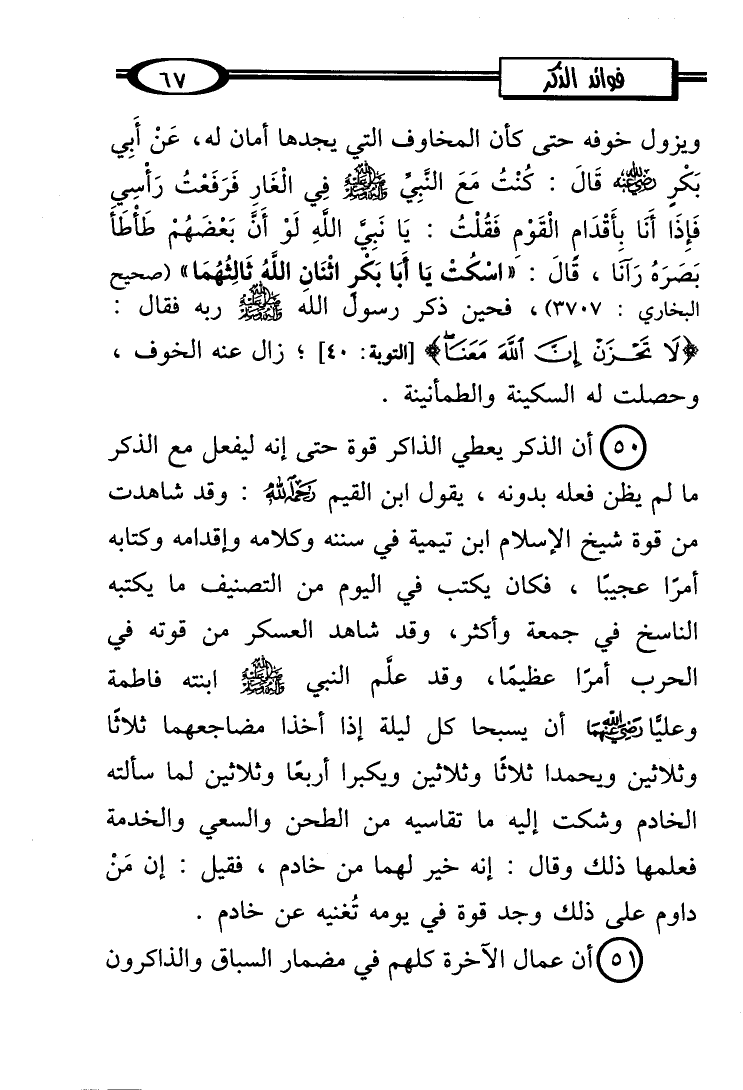 فوائد الذكر
٦٧
ويزول خوفه حتى كأن المخاوف التي يجدها أمان له، عَنْ أَبِي
بَكْرٍ رضي الله عنه قَالَ : كُنْتُ مَعَ النَّبِيِّ ﷺ فِي الْغَارِ فَرَفَعْتُ رَأْسِي
فَإِذَا أَنَا بِأَقْدَامِ الْقَوْمِ فَقُلْتُ : يَا نَبِيَّ اللَّهِ لَوْ أَنَّ بَعْضَهُمْ طَأْطَأَ
بَصَرَهُ رَآنَا ، قَالَ : «اسْكُتْ يَا أَبَا بَكْرٍ اثْنَانِ اللَّهُ ثَالِثُهُمَا» (صحيح
البخاري : ٣٧٠٧)، فحين ذكر رسول الله ﷺ ربه فقال :
﴿لَا تَحْزَنْ إِنَّ ٱللَّهَ مَعَنَاۖ﴾ [التوبة: ٤٠] ؛ زال عنه الخوف ،
وحصلت له السكينة والطمأنينة .
٥٠ أن الذكر يعطي الذاكر قوة حتى إنه ليفعل مع الذكر
ما لم يظن فعله بدونه ، يقول ابن القيم رحمه الله : وقد شاهدت
من قوة شيخ الإسلام ابن تيمية في سننه وكلامه وإقدامه وكتابه
أمرًا عجيبًا ، فكان يكتب في اليوم من التصنيف ما يكتبه
الناسخ في جمعة وأكثر، وقد شاهد العسكر من قوته في
الحرب أمرًا عظيمًا، وقد علَّم النبي ﷺ ابنته فاطمة
وعليًّا رضي الله عنهما أن يسبحا كل ليلة إذا أخذا مضاجعهما ثلاثًا
وثلاثين ويحمدا ثلاثًا وثلاثين ويكبرا أربعًا وثلاثين لما سألته
الخادم وشكت إليه ما تقاسيه من الطحن والسعي والخدمة
فعلمها ذلك وقال : إنه خير لهما من خادم ، فقيل : إن مَنْ
داوم على ذلك وجد قوة في يومه تُغنيه عن خادم .
٥١ أن عمال الآخرة كلهم في مضمار السباق والذاكرون